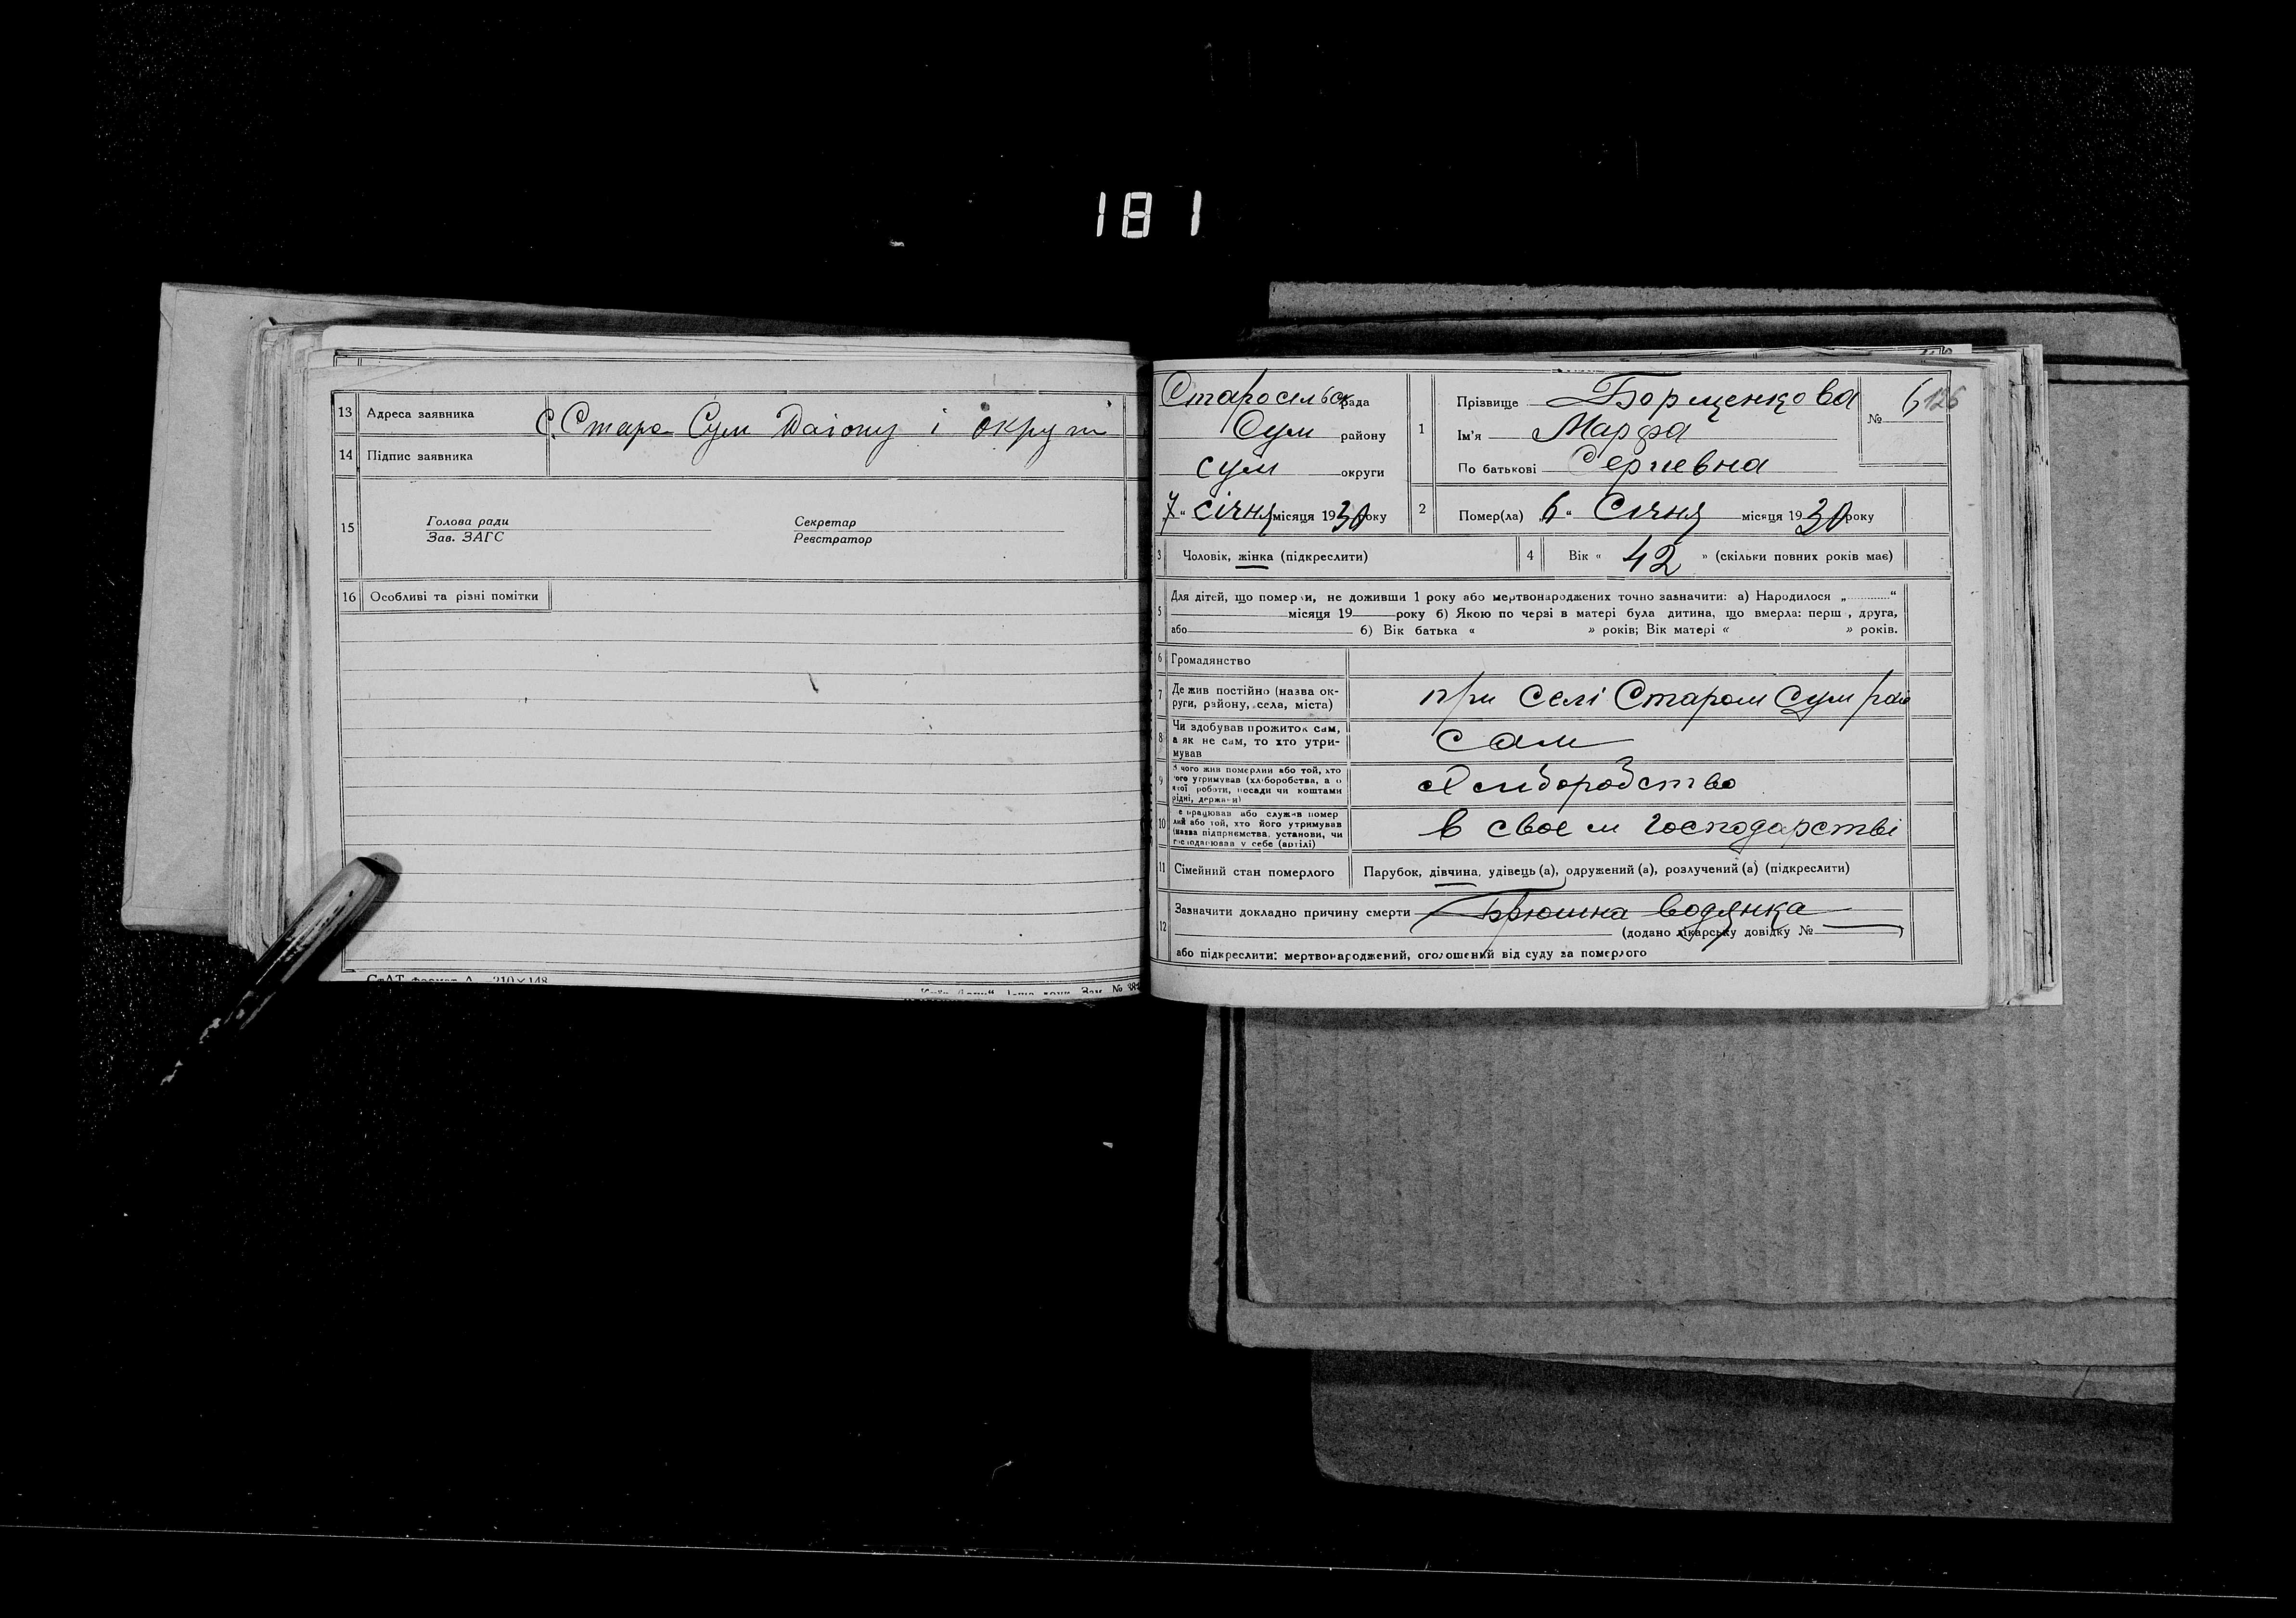 181
13 Адреса заявника С. Стара Сум Району і округи
14 Підпис заявника
15 Голова ради Секретар
Зав. ЗАГС Реєстратор
16 Особливі та різні помітки
Старосельск рада
Сум району
Сум округи
„7“ січня місяця 1930 року
1 Прізвище Борщенкова
Ім'я Марфа
По батькові Сергіевна
№ 6 126
2 Помер(ла) „6“ Січня місяця 1930 року
3 Чоловік, жінка (підкреслити)
4 Вік « 42 » (скільки повних років має)
5 Для дітей, що померли, не доживши 1 року або мертвонароджених точно зазначити: а) Народилося „ “
місяця 19 року б) Якою по черзі в матері була дитина, що вмерла: перш , друга,
або б) Вік батька « » років; Вік матері « » років.
6 Громадянство
7 Де жив постійно (назва ок-
руги, району, села, міста) при Селі Старом Сум рай
8 Чи здобував прожиток сам,
а як не сам, то хто утри-
мував сам
9 З чого жив померлий або той, хто
його утримував (хліборобства, а о
якої роботи, посади чи коштами
рідні, держави) Хлиборобство
10 е працював або служив помер
лий або той, хто його утримував
(назва підприємства, установи, чи
господарював у себе (артілі) в своем господарстві
11 Сімейний стан померлого Парубок, дівчина, удівець (а), одружений (а), розлучений (а) (підкреслити)
12 Зазначити докладно причину смерти Брюшна водянка
(додано лікарську довідку № )
або підкреслити: мертвонароджений, оголошений від суду за померлого
210×148
Зам. №